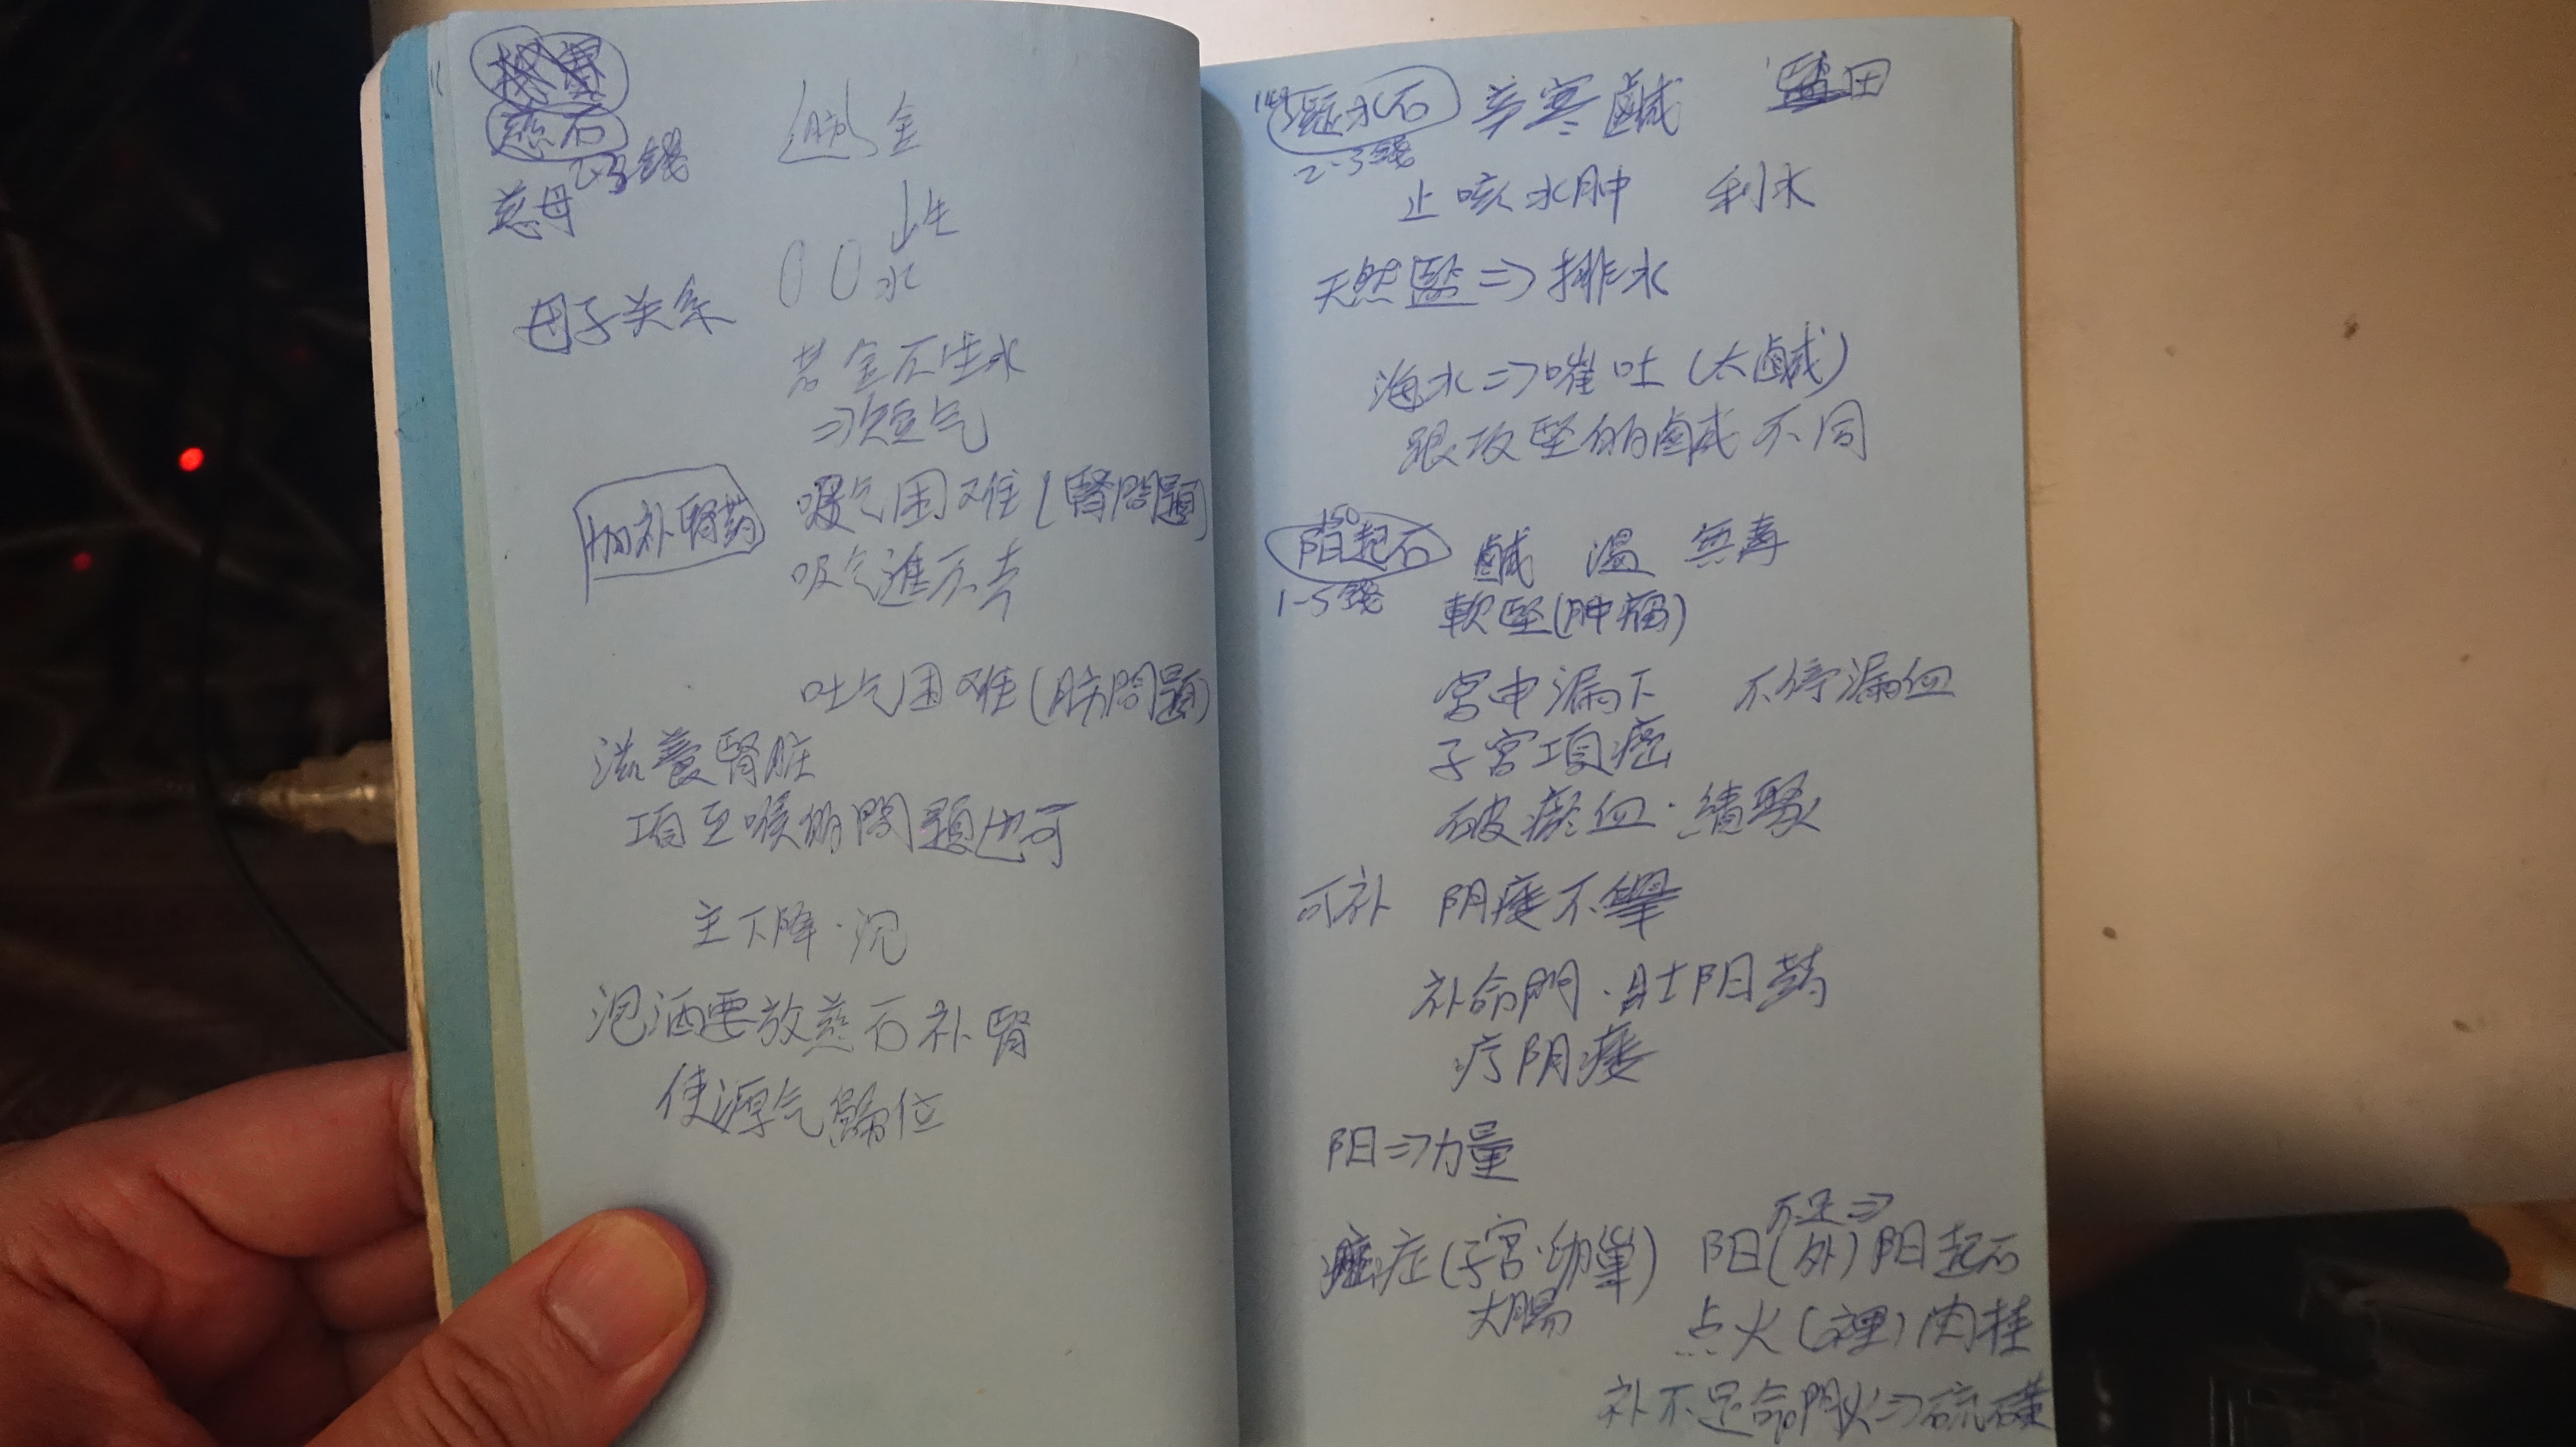 慈石
2-3錢
慈母
母子关系
肺 金
↓生
水
若金不生水
⇒短气
加补腎药
吸气困难(腎問題)
吸气進不去
吐气困难(肺問題)
滋養腎脏
項至喉的問題也可
主下降.沉
泡酒要放慈石补腎
使源气歸位
149
凝水石 辛寒鹹 鹽田
2-3錢
止咳水肿 利水
天然鹽⇒排水
海水⇒嘔吐(太鹹)
跟攻堅的鹹不同
150
阳起石 鹹 溫 無毒
1-5錢
軟堅(肿瘤)
宮中漏下 不停漏血
子宮項癌
破瘀血.積聚
可补 阴痿不舉
补命門.壯阳药
疗阴痿
阳⇒力量
不足⇒
癌症(子宮.卵巢) 阳(外)阳起石
大腸 点火(裡)肉桂
补不足命門火⇒硫磺